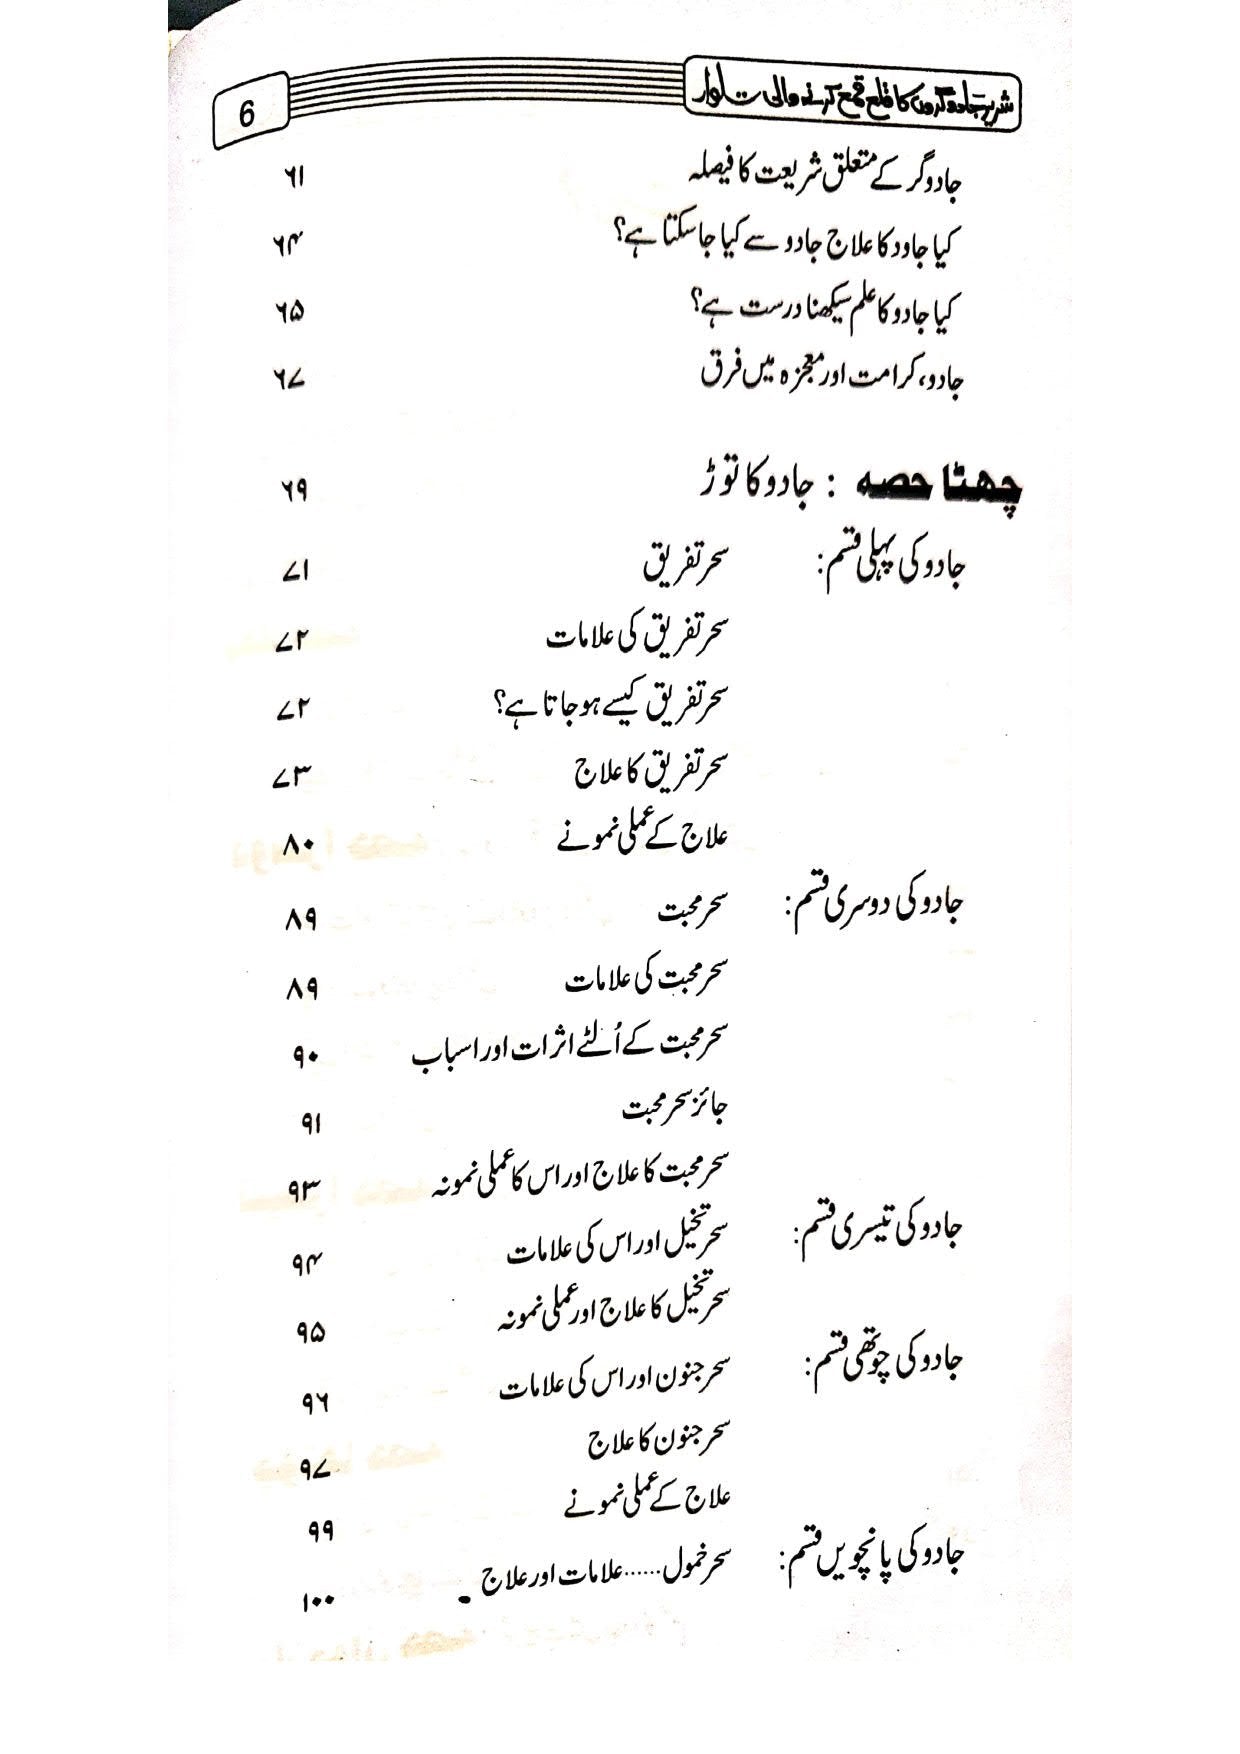 شریر جادوگروں کا قلع قمع کرنے والی تلوار 6
جادوگر کے متعلق شریعت کا فیصلہ ۶۱
کیا جاود کا علاج جادو سے کیا جا سکتا ہے؟ ۶۴
کیا جادو کا علم سیکھنا درست ہے؟ ۶۵
جادو، کرامت اور معجزہ میں فرق ۶۷
چھٹا حصہ : جادو کا توڑ ۶۹
جادو کی پہلی قسم: سحر تفریق ۷۱
سحر تفریق کی علامات ۷۲
سحر تفریق کیسے ہو جاتا ہے؟ ۷۲
سحر تفریق کا علاج ۷۳
علاج کے عملی نمونے ۸۰
جادو کی دوسری قسم: سحر محبت ۸۹
سحر محبت کی علامات ۸۹
سحر محبت کے اُلٹے اثرات اور اسباب ۹۰
جائز سحر محبت ۹۱
سحر محبت کا علاج اور اس کا عملی نمونہ ۹۳
جادو کی تیسری قسم: سحر تخیل اور اس کی علامات ۹۴
سحر تخیل کا علاج اور عملی نمونہ ۹۵
جادو کی چوتھی قسم: سحر جنون اور اس کی علامات ۹۶
سحر جنون کا علاج ۹۷
علاج کے عملی نمونے ۹۹
جادو کی پانچویں قسم: سحر خمول......علامات اور علاج ۱۰۰